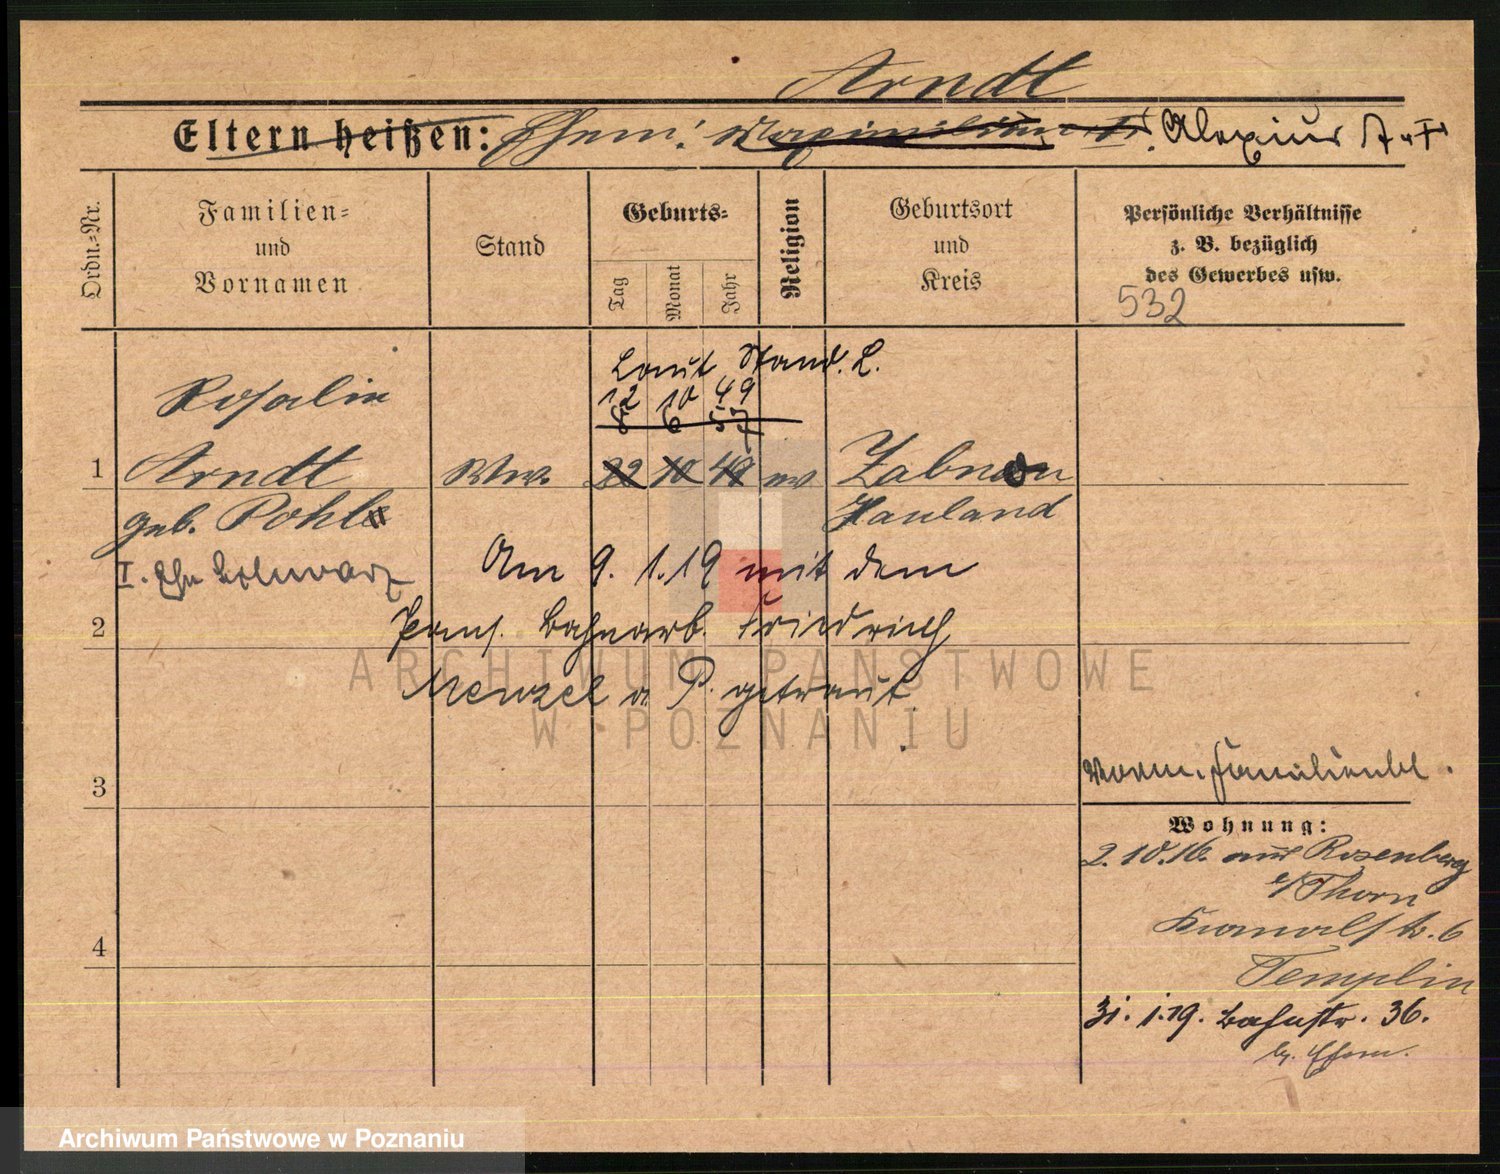 Arndt
Eltern heißen: Ehem: Maximilian A. Alexius A. †
Ordn.=Nr.
Familien=
und
Vornamen
Stand
Geburts=
Tag
Monat
Jahr
Religion
Geburtsort
und
Kreis
Persönliche Verhältnisse
z. B. bezüglich
des Gewerbes usw.
532
Laut Stand.
12 10 49
8 6 57
Rosalie
1 Arndt Ww. 22 10 49 ev Zabno
geb. Pohl Hauland
I. Ehe Schwarz
Am 9. 1. 19 mit dem
2
Pens. Bahnarb. Friedrich
Menzel a. P. getraut.
3
Vorm. Familienbl.
Wohnung:
2.10.16. aus Rosenberg
Thorn
4
Kanalstr. 6
Templin
31. 1. 19. Bahnstr. 36.
b. Ehem.
ARCHIWUM PAŃSTWOWE
W POZNANIU
Archiwum Państwowe w Poznaniu